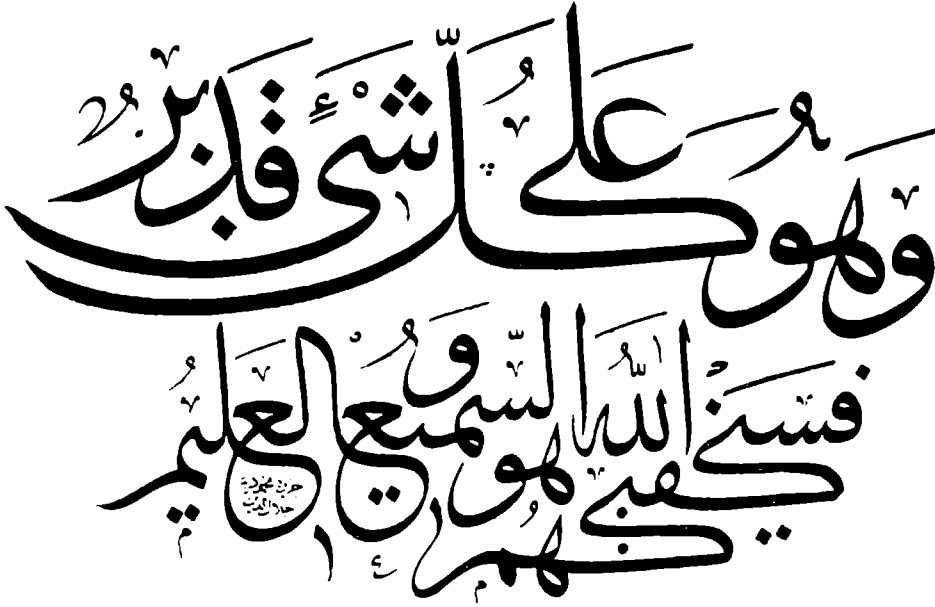 وَهُوَ عَلَىٰ كُلِّ شَىْءٍ قَدِيرٌ
فَسَيَكْفِيكَهُمُ اللَّهُ وَهُوَ السَّمِيعُ الْعَلِيمُ